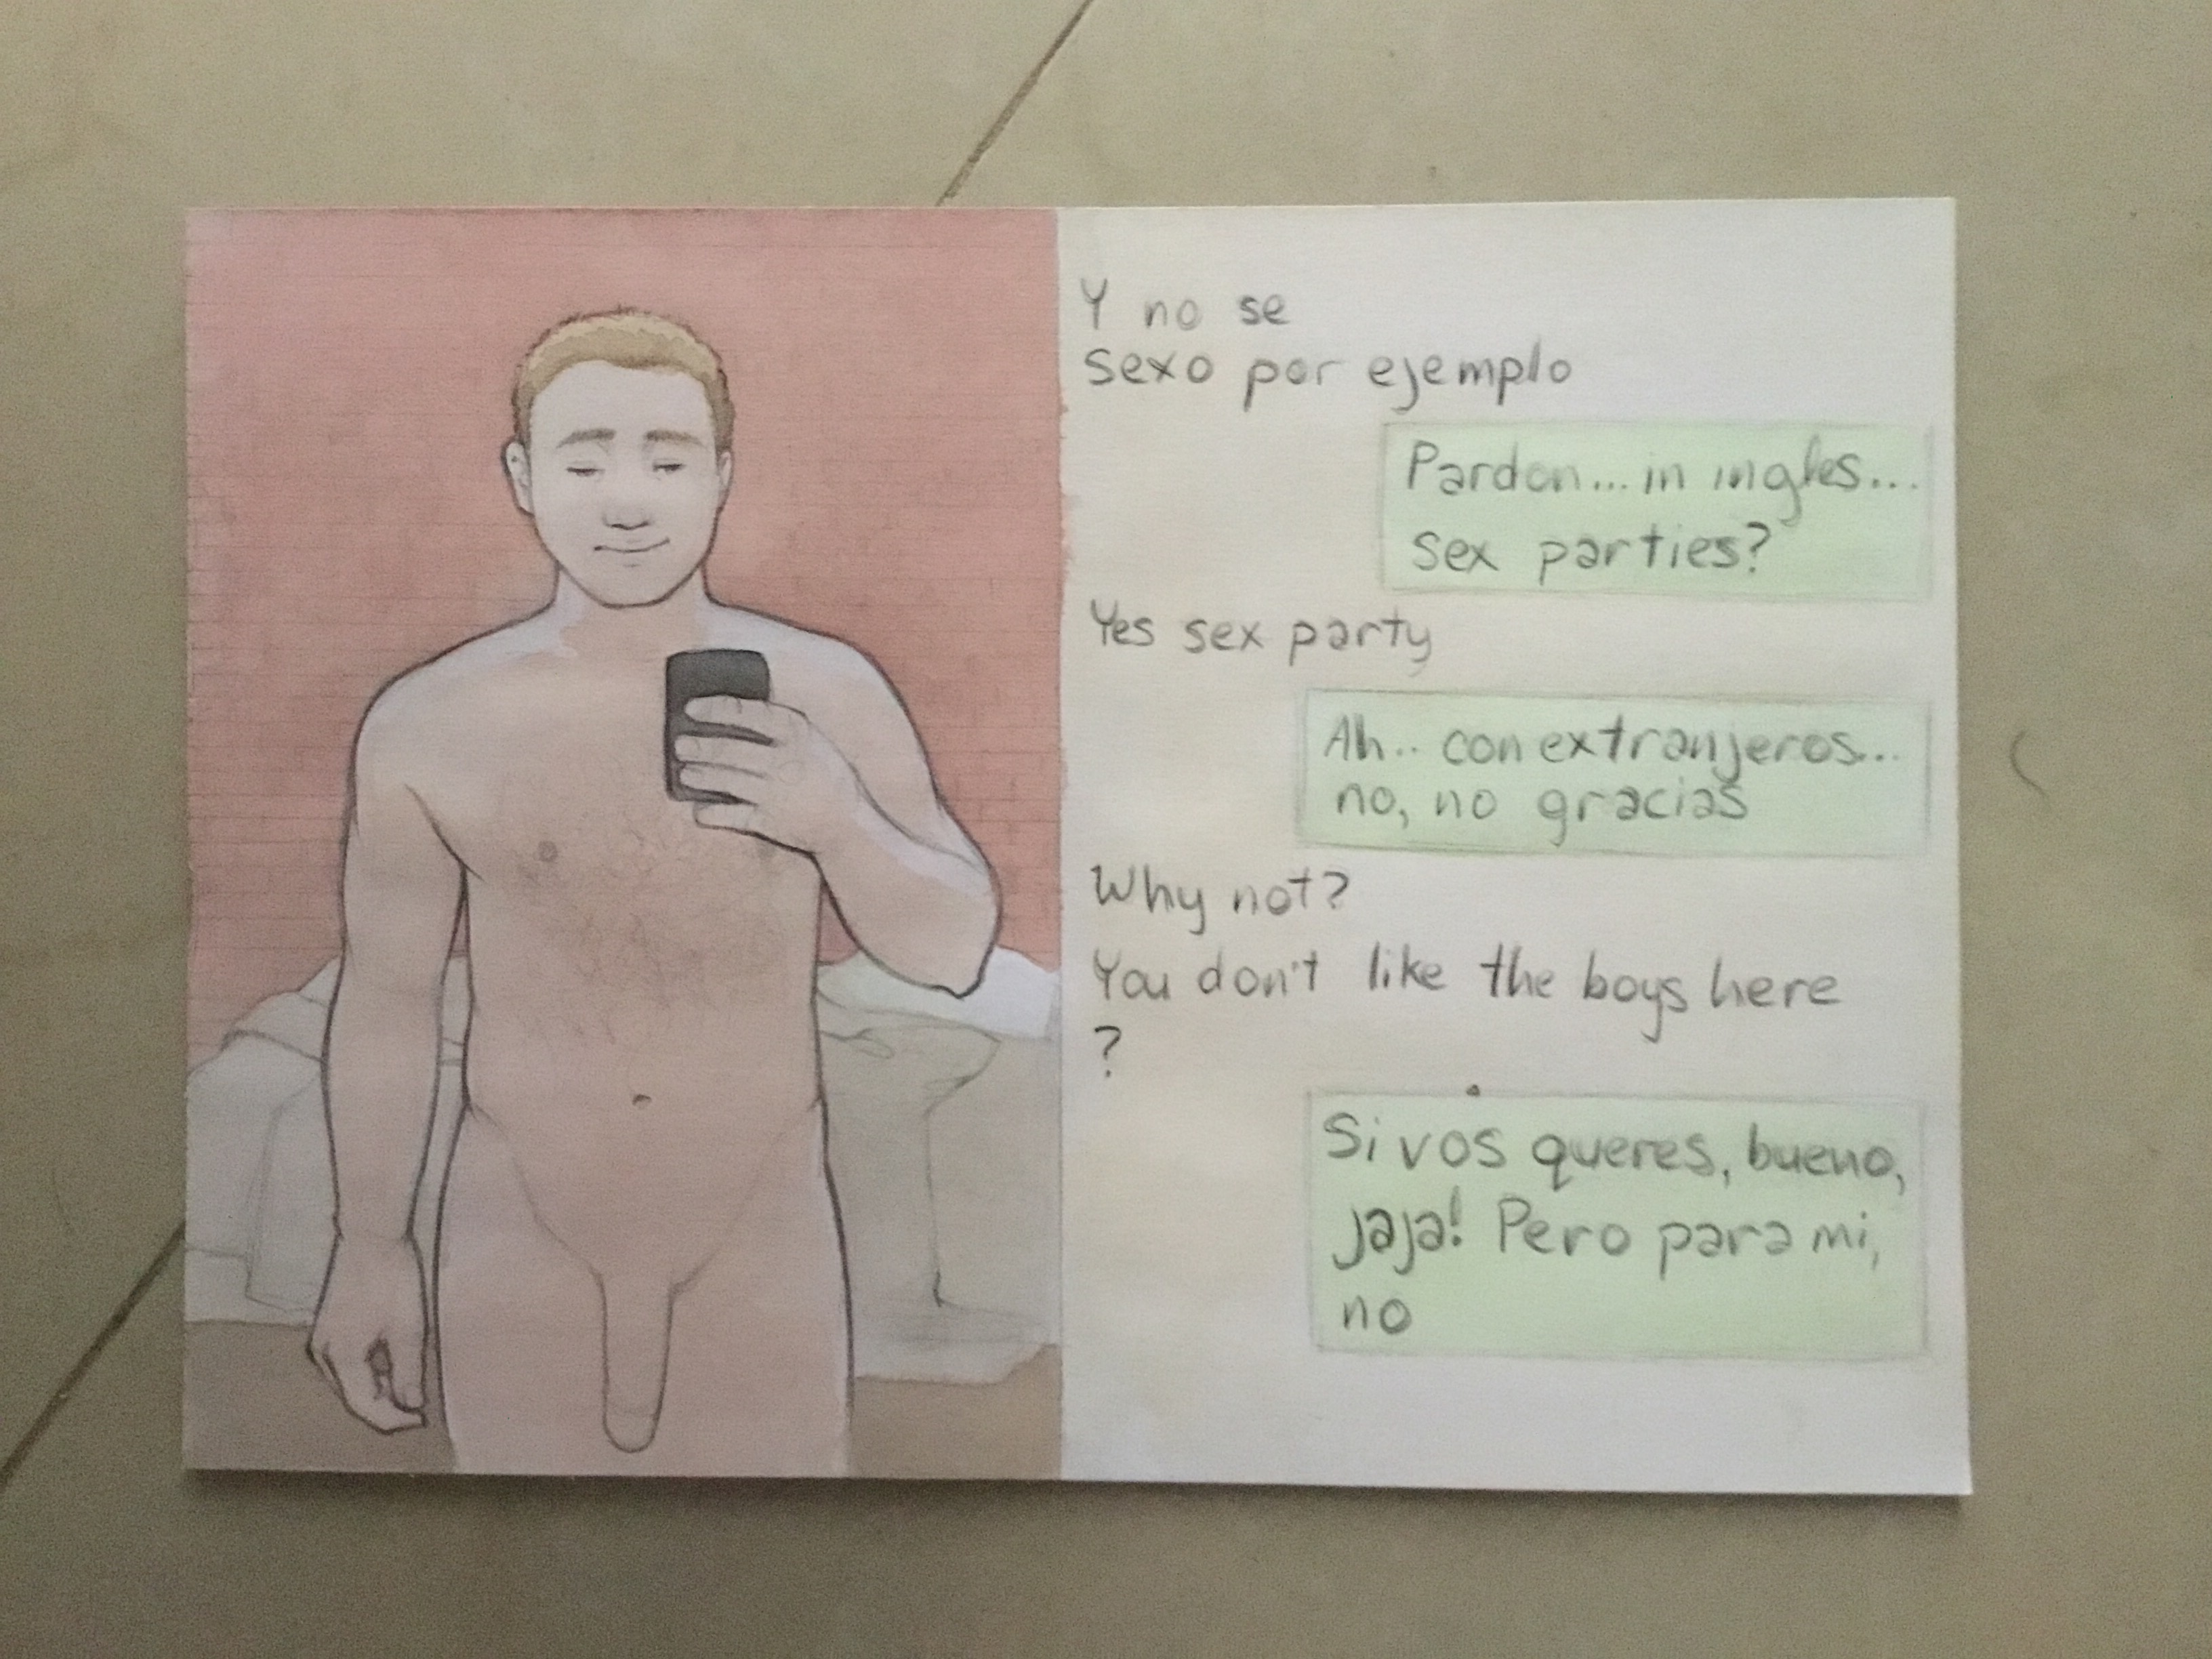 Y no se
sexo por ejemplo
Pardon... in ingles...
sex parties?
Yes sex party
Ah.. con extranjeros...
no, no gracias
Why not?
You don't like the boys here
?
Si vos queres, bueno,
jaja! Pero para mi,
no